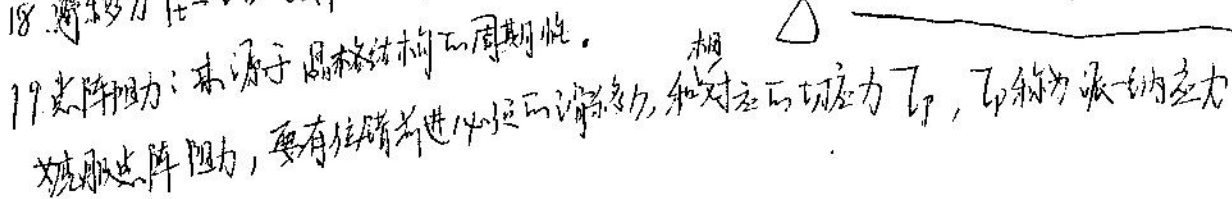 18.滑移力
19.点阵阻力:来源于晶格结构的周期性。
为克服点阵阻力,要有位错前进必须的滑移力,和相对应的切应力τp,τp称为派-纳应力